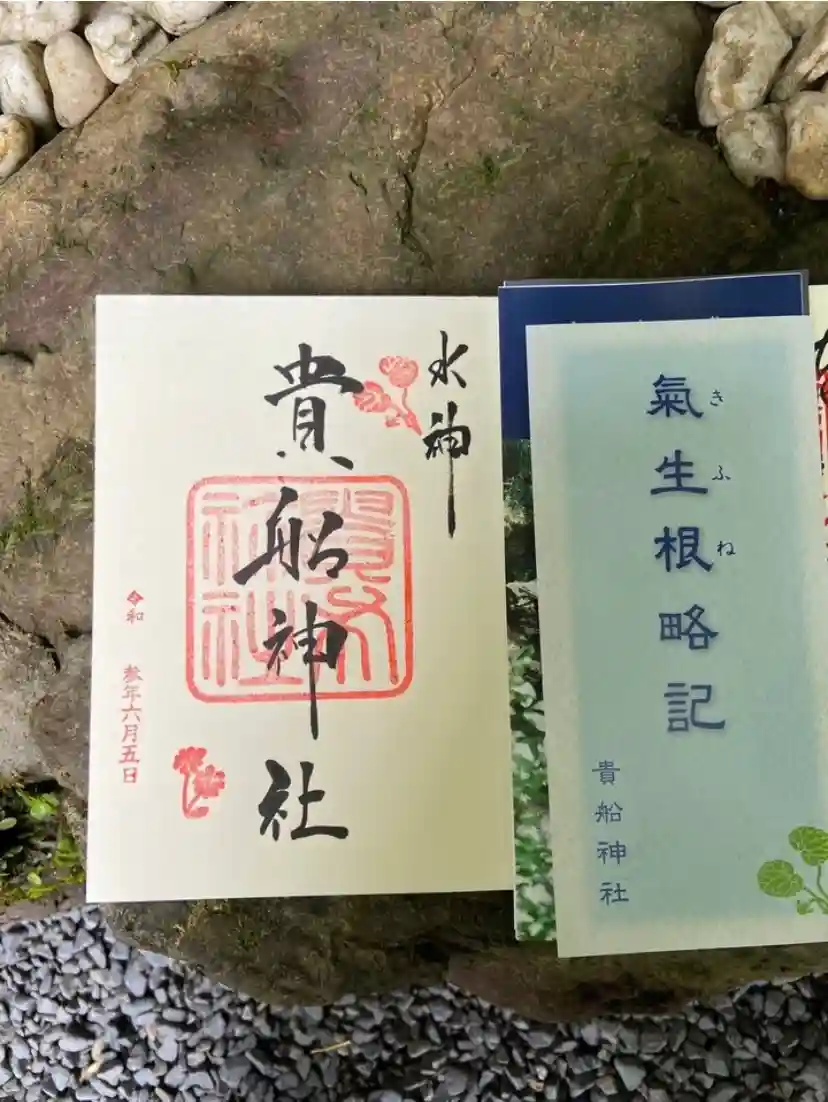 水神
貴船神社
令和
参年六月五日
氣生根略記
きふね
貴船神社